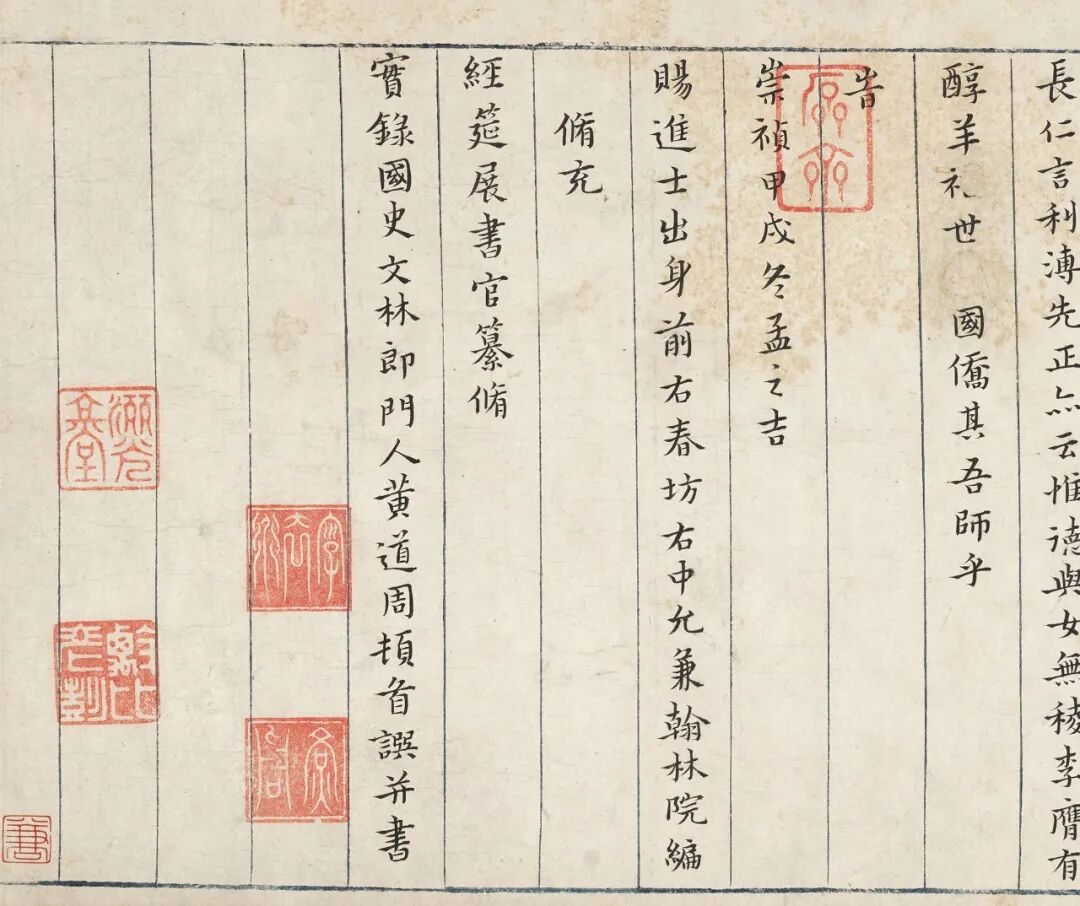 長仁言利溥先正亦云惟德與女無稜李膺有
醇羊礼世 國僑其吾師乎
旹
崇禎甲戌冬孟之吉
賜進士出身前右春坊右中允兼翰林院編
脩充
經筵展書官纂脩
實錄國史文林郎門人黃道周頓首譔并書